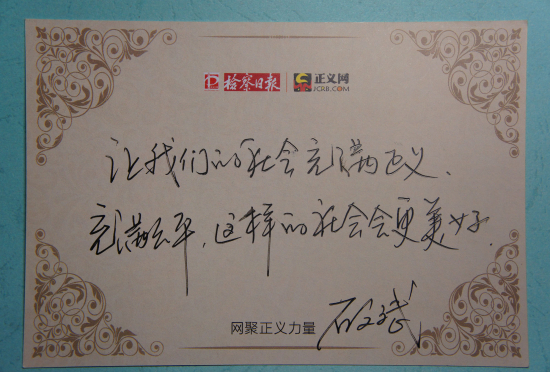 检察日报 正义网
JCRB.COM
让我们的社会充满正义、
充满公平,这样的社会会更美好.
网聚正义力量